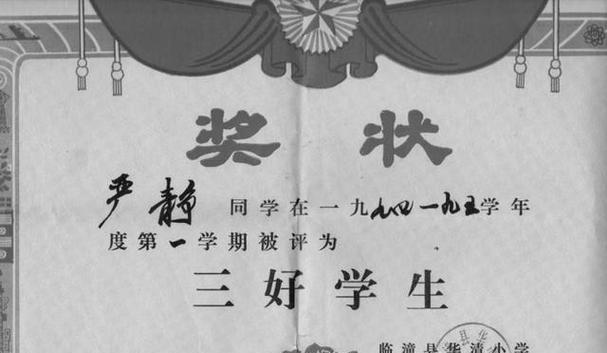 奖状
严静同学在一九九四一九五学年
度第一学期被评为
三好学生
临潼县华清小学